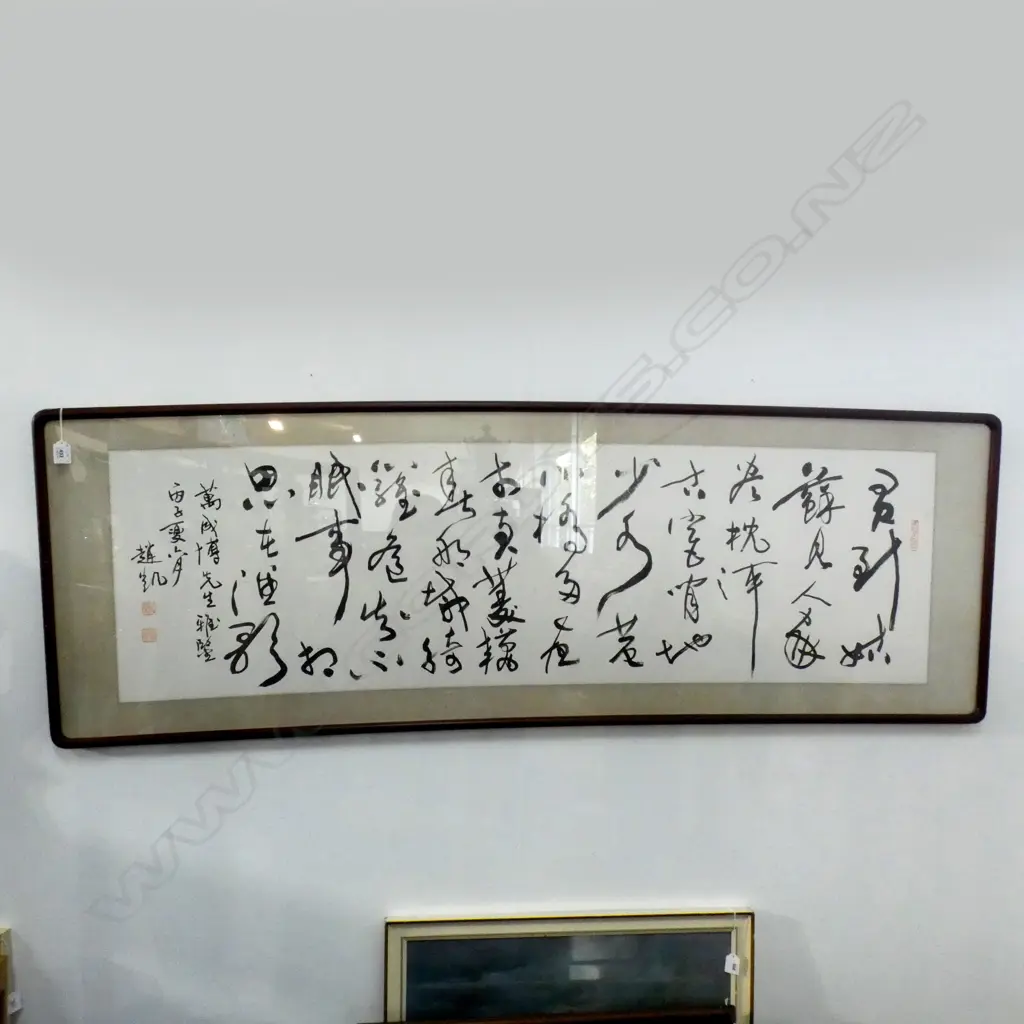 君到姑
蘇見人家
盡枕河
古宮閒地
少水巷
小橋多夜
市賣菱藕
春船載綺
羅遙知不
眠事
思在漁歌
萬成博先生雅鑒
丙子夏六月
趙凱